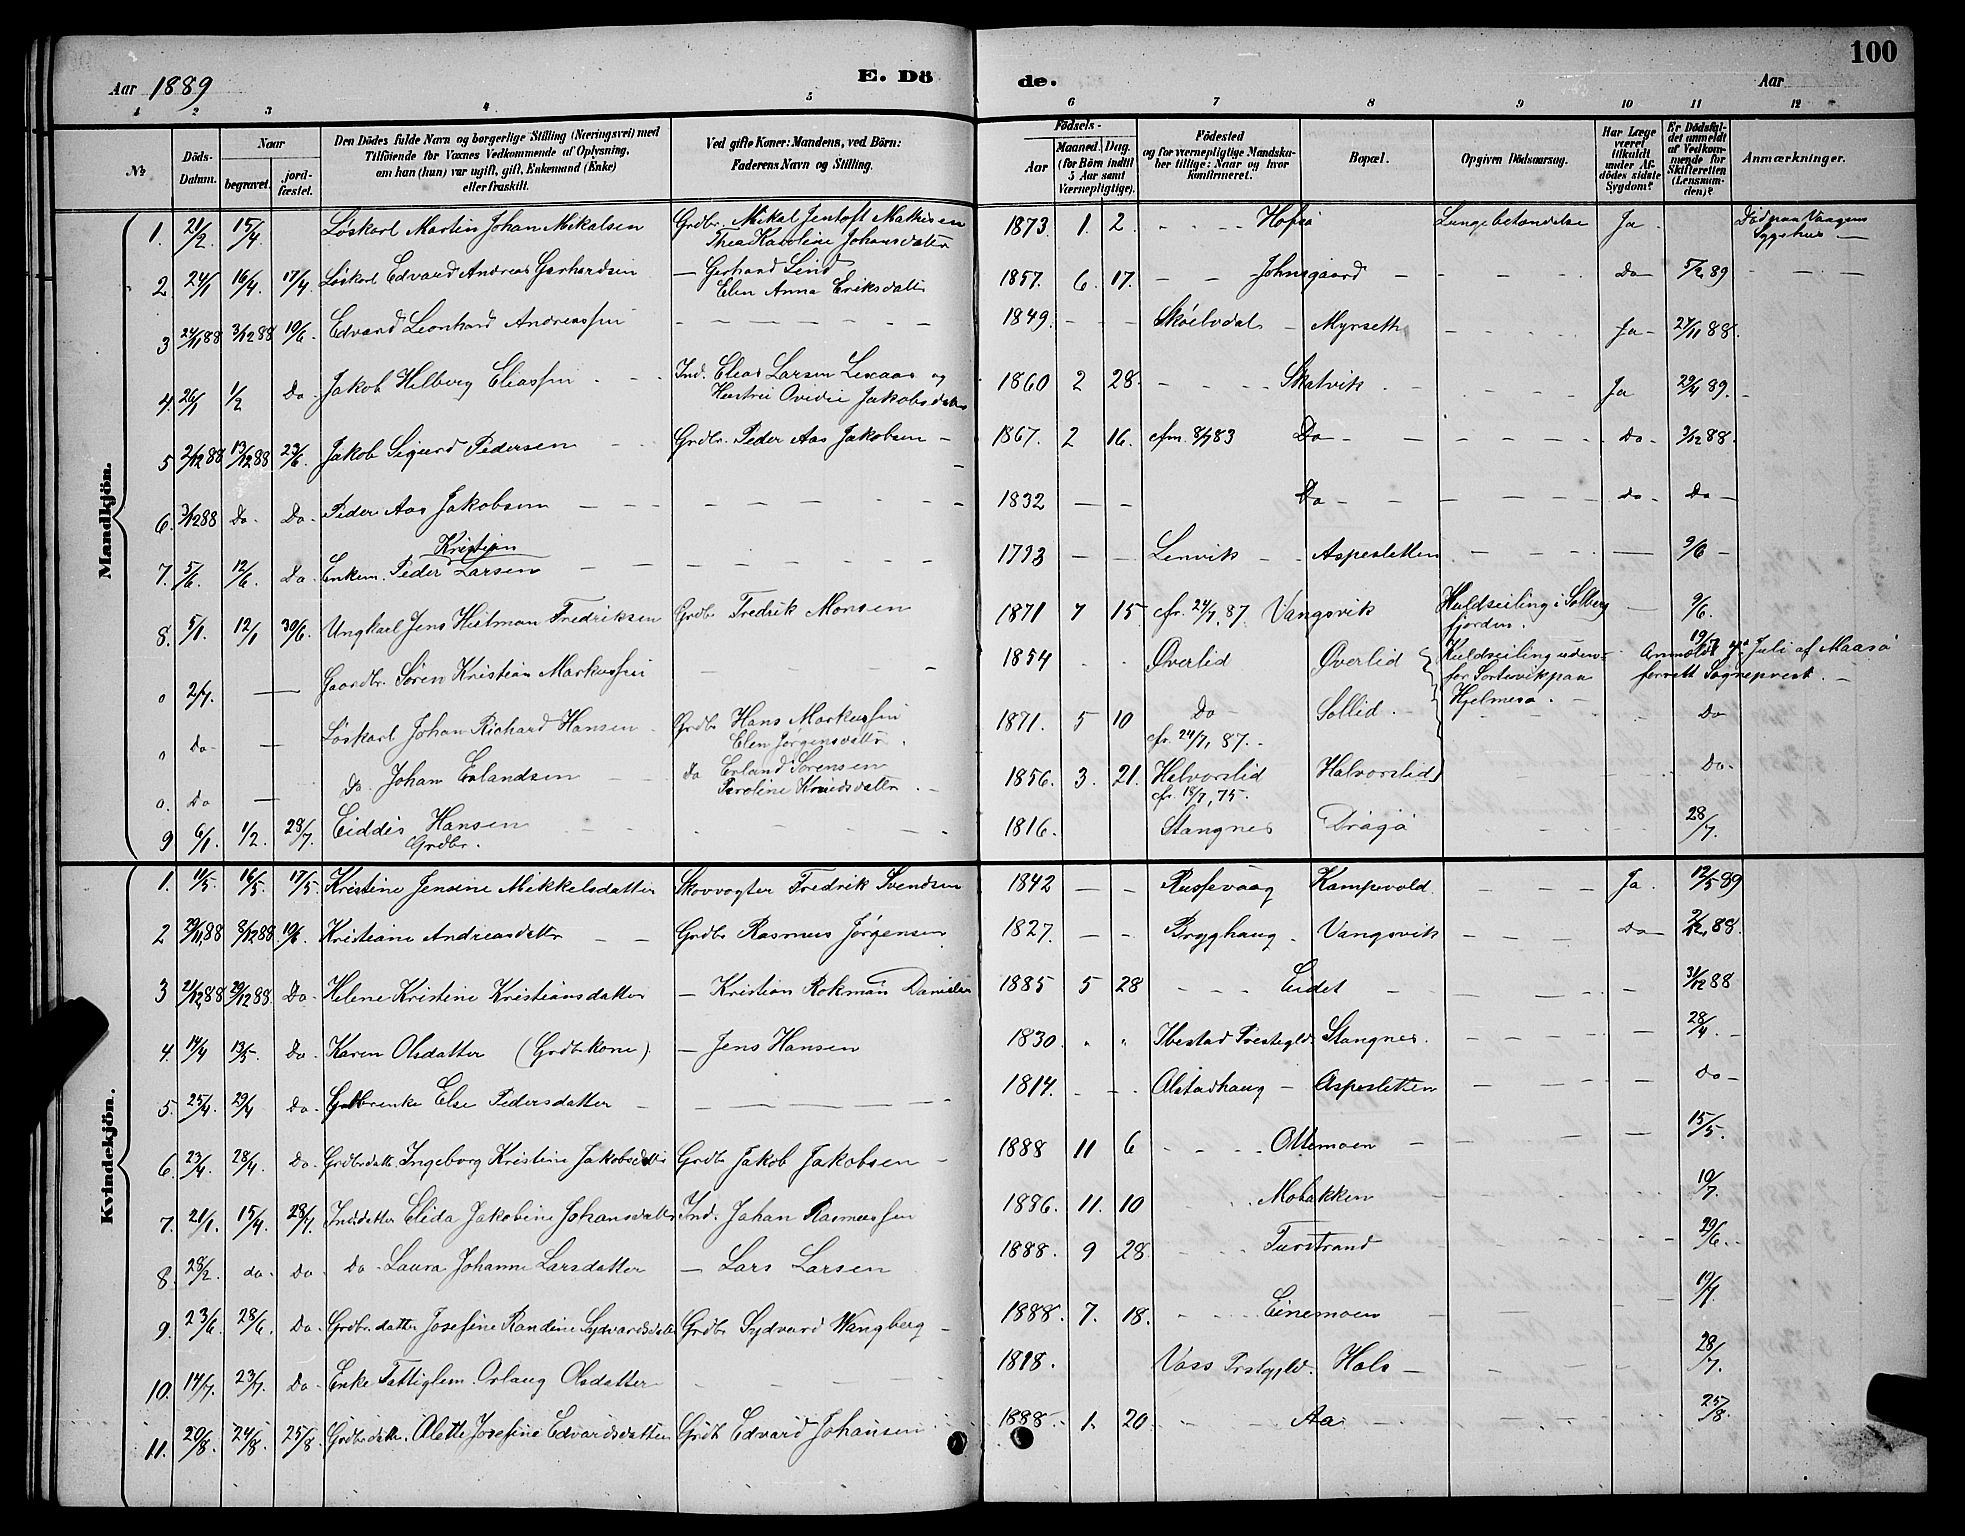 Aar 1889
E. Dö
de.
Aar
100
1 2 3 4 5 6 7 8 9 10 11 12
№
Döds-Datum.
Naar
begravet.
jordfæstet.
Den Dödes fulde Navn og borgerlige Stilling (Næringsvei) med
Tilföiende for Voxnes Vedkommende af Oplysning,
om han (hun) var ugift, gift, Enkemand (Enke)
eller fraskilt.
Ved gifte Koner: Mandens, ved Börn:
Faderens Navn og Stilling.
Födsels-
Aar
Maaned. Dag.
(for Börn indtil 5 Aar samt Værnepligtige).
Födested
og for værnepligtige Mandskaber tillige: Naar og hvor konfirmeret.
Bopæl.
Opgiven Dödsaarsag.
Har Læge været tilkaldt under Afdödes sidste Sygdom?
Er Dödsfaldet anmeldt af Vedkommende for Skifteretten (Lensmanden)?
Anmærkninger.
Mandkjön.
1. 21/2. 15/4. Løskarl Martin Johan Mikalsen Grdbr. Mikal Jentoft Mathisen 1873. 1. 2. - - - Hofsö Lungebetændelse Ja. Död paa Vaagens
Thea Karoline Johansdatter Sygehus -
2 24/1 16/4. 17/4. Løskarl Edvard Andreas Gerhardsen - Gerhard Lind 1857. 6. 17. - - Johnsgaard - - Do 5/2 89 - - -
Elen Anna Eriksdatter
3 24/11 88 3/12 88 19/6. Edvard Leonhard Andreassen - - - 1849. - - Sköelvdal - Myrseth - - Ja - 27/11 88.
4. 26/1 1/2 Do. Jakob Hilberg Eliassen Ind. Elias Larsen Lexaas og 1860 2 28. - - - Skatvik - - Ja 29/4 89. -
Hustru Ovidie Jakobsdatter
5 2/12 88 13/12 88 23/6. Jakob Sigurd Pedersen Grdbr. Peder Aas Jakobsen - 1867. 2 16. cfm. 8/7 83 Do - - - Do - 3/12 88.
6. 3/12 88 Do - Do - Peder Aas Jakobsen - - - 1832 - - Do - - - do - Do -
Kristian
7. 5/6. 12/6. Do. Enkem. Peder Larsen - - - 1793 - - Lenvik - Aspesletten - - - 9/6 -
8. 5/1. 12/1 30/6. Ungkarl Jens Hilman Fredriksen Grdbr Fredrik Monsen 1871 7 15 cfr. 24/7, 87. Vangsvik Kuldseiling i Solberg - 9/6.
fjorden.
0 2/7. - Gaardbr. Sören Kristian Markussen - - 1854 - - Överlid Överlid Kuldseiling uden- Anmeldt 19/7 Juli af Maasö
for Sortevik paa forrett Sognepræst. -
0 Do - - Löskarl Johan Richard Hansen Grdbr Hans Markussen 1871. 5 10 Do - Sollid. - Hjelmesö. - Do
Elen Jörgensdatter. cfr. 24/7, 87. -
0. Do - Do. Johan Erlandsen - Do Erland Sörensen 1856. 3. 21. Halvorslid Halvorslid - Do -
Karoline Knudsdatter. cfr. 18/7, 75.
9 6/1 1/2. 28/7. Eiddis Hansen - - - 1816. Stangnes Drågö - - 28/7.
Grdbr.
Kvindekjön.
1. 11/5. 16/5. 17/5 Kristine Jensine Mikkelsdatter Skovvogter Fredrik Svendsen 1842 - - Russevaag Kampevold. - - - Ja. 12/5 89
2 29/11 88 8/12 88. 19/6. Kristiane Andreasdatter - - Grdbr Rasmus Jörgensen 1827. - - Brygghaug. Vangsvik - - - Do - 2/12 88.
3 21/12 88 29/12 88. Do - Helene Kristine Kristiansdatter - Kristian Rokman Danielsen 1885 5 28 - - - Eidet - - - - 31/12 88
4. 14/4 13/5. Do - Karen Olsdatter (Grdbkone). - Jens Hansen 1830. " " Ibestad Prestegld. Stangnes. - - - 28/4. -
5. 25/4. 29/4 Do - Grdbrenke Else Pedersdatter - - - 1814. - - Alstadhaug - Aspesletten - - - Do -
6. 23/4. 28/4. Do - Grdbrdatter Ingeborg Kristine Jakobsdatter Grdbr Jakob Jakobsen - 1888 11 6 - - - Ottemoen - - - 15/5.
7. 21/1. 15/4. 28/7. Inddatter Elida Jakobine Johansdatter Ind. Johan Rasmussen 1886. 11. 10 - Mobakken - - 10/7.
8. 28/2. do - Do - Do - Laura Johanne Larsdatter - Lars Larsen 1888. 9 28. - - - Furstrand - - 29/6. -
9. 23/6. 28/6. Do - Grdbr.datter Josefine Randine Sydvardsdatter Grdbr Sydvard Wangberg - 1888. 7. 18. - - - Einemoen - - -
10. 14/7. 23/7. Do - Enke Fattiglem. Orlaug Olsdatter - - - 1818. Voss Prstgjld. Hals - - - 28/7.
11. 20/8. 24/8. 25/8. Grdbrdatter. Olette Josefine Edvardsdatter Grdb Edvard Johansen 1888. - 1. 20. - - Aa - - 25/8.